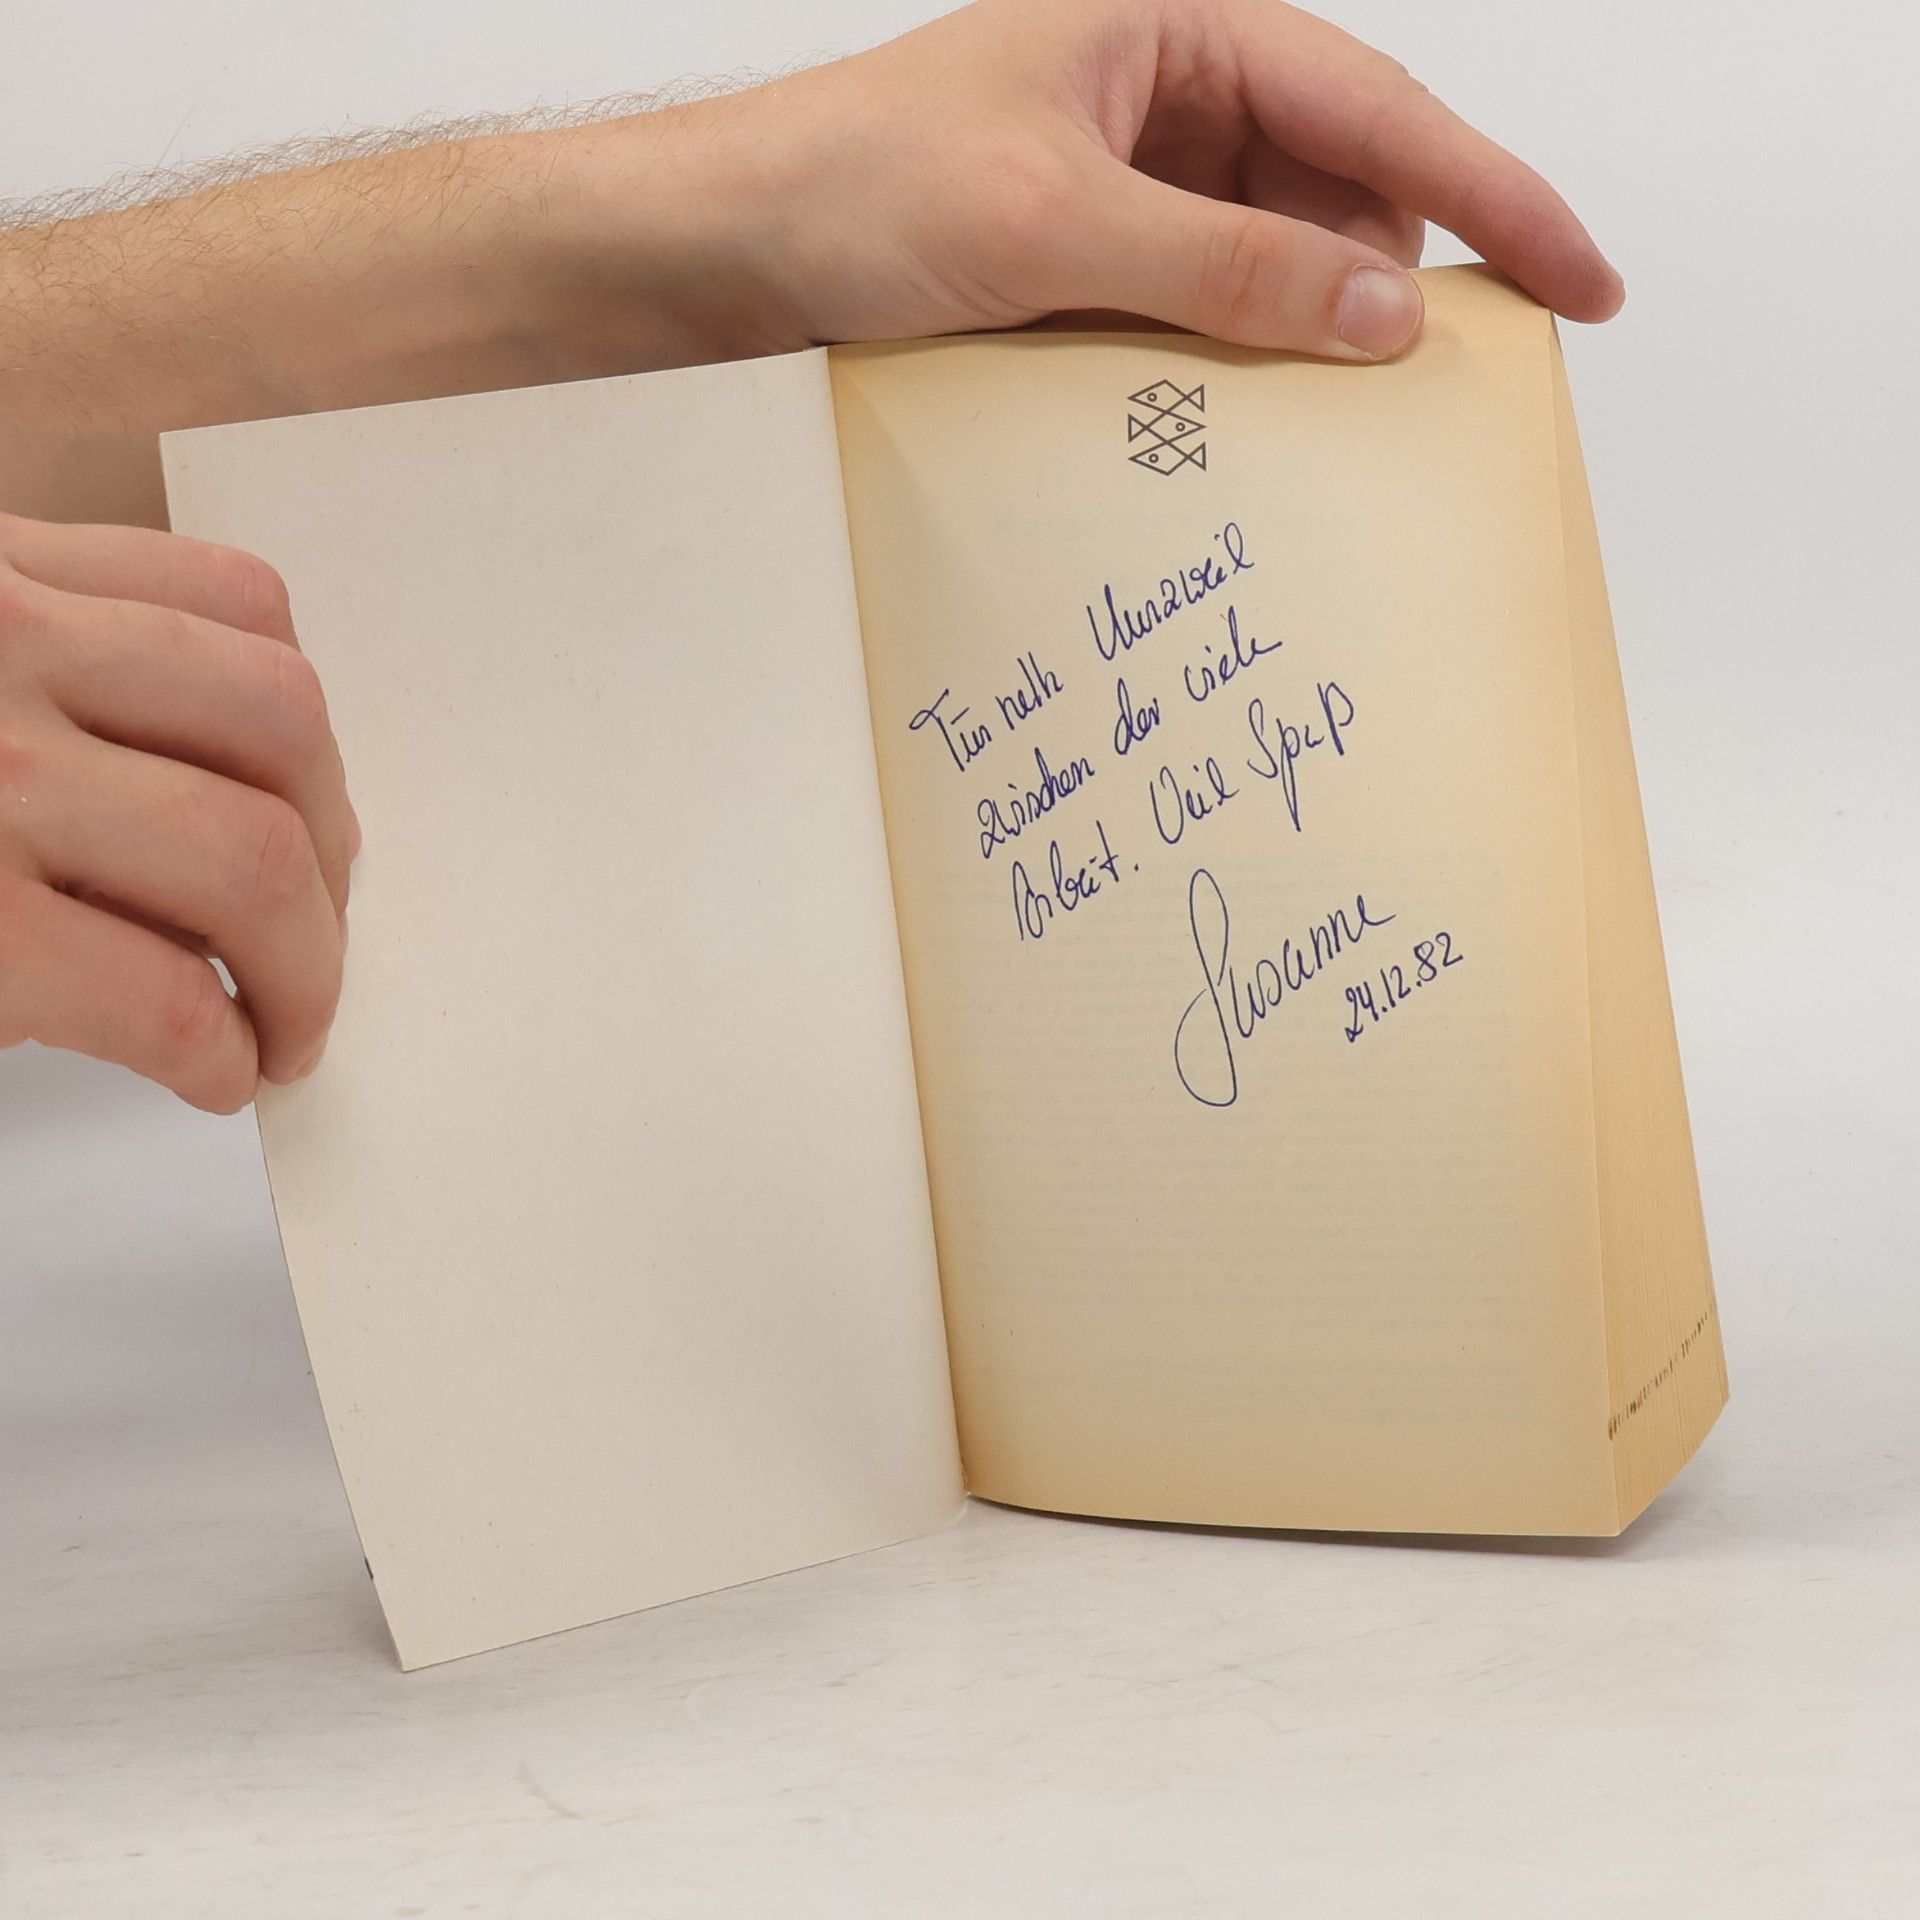 Für nette Kurzweil
zwischen der viele
Arbeit. Viel Spaß
Susanne
24.12.82